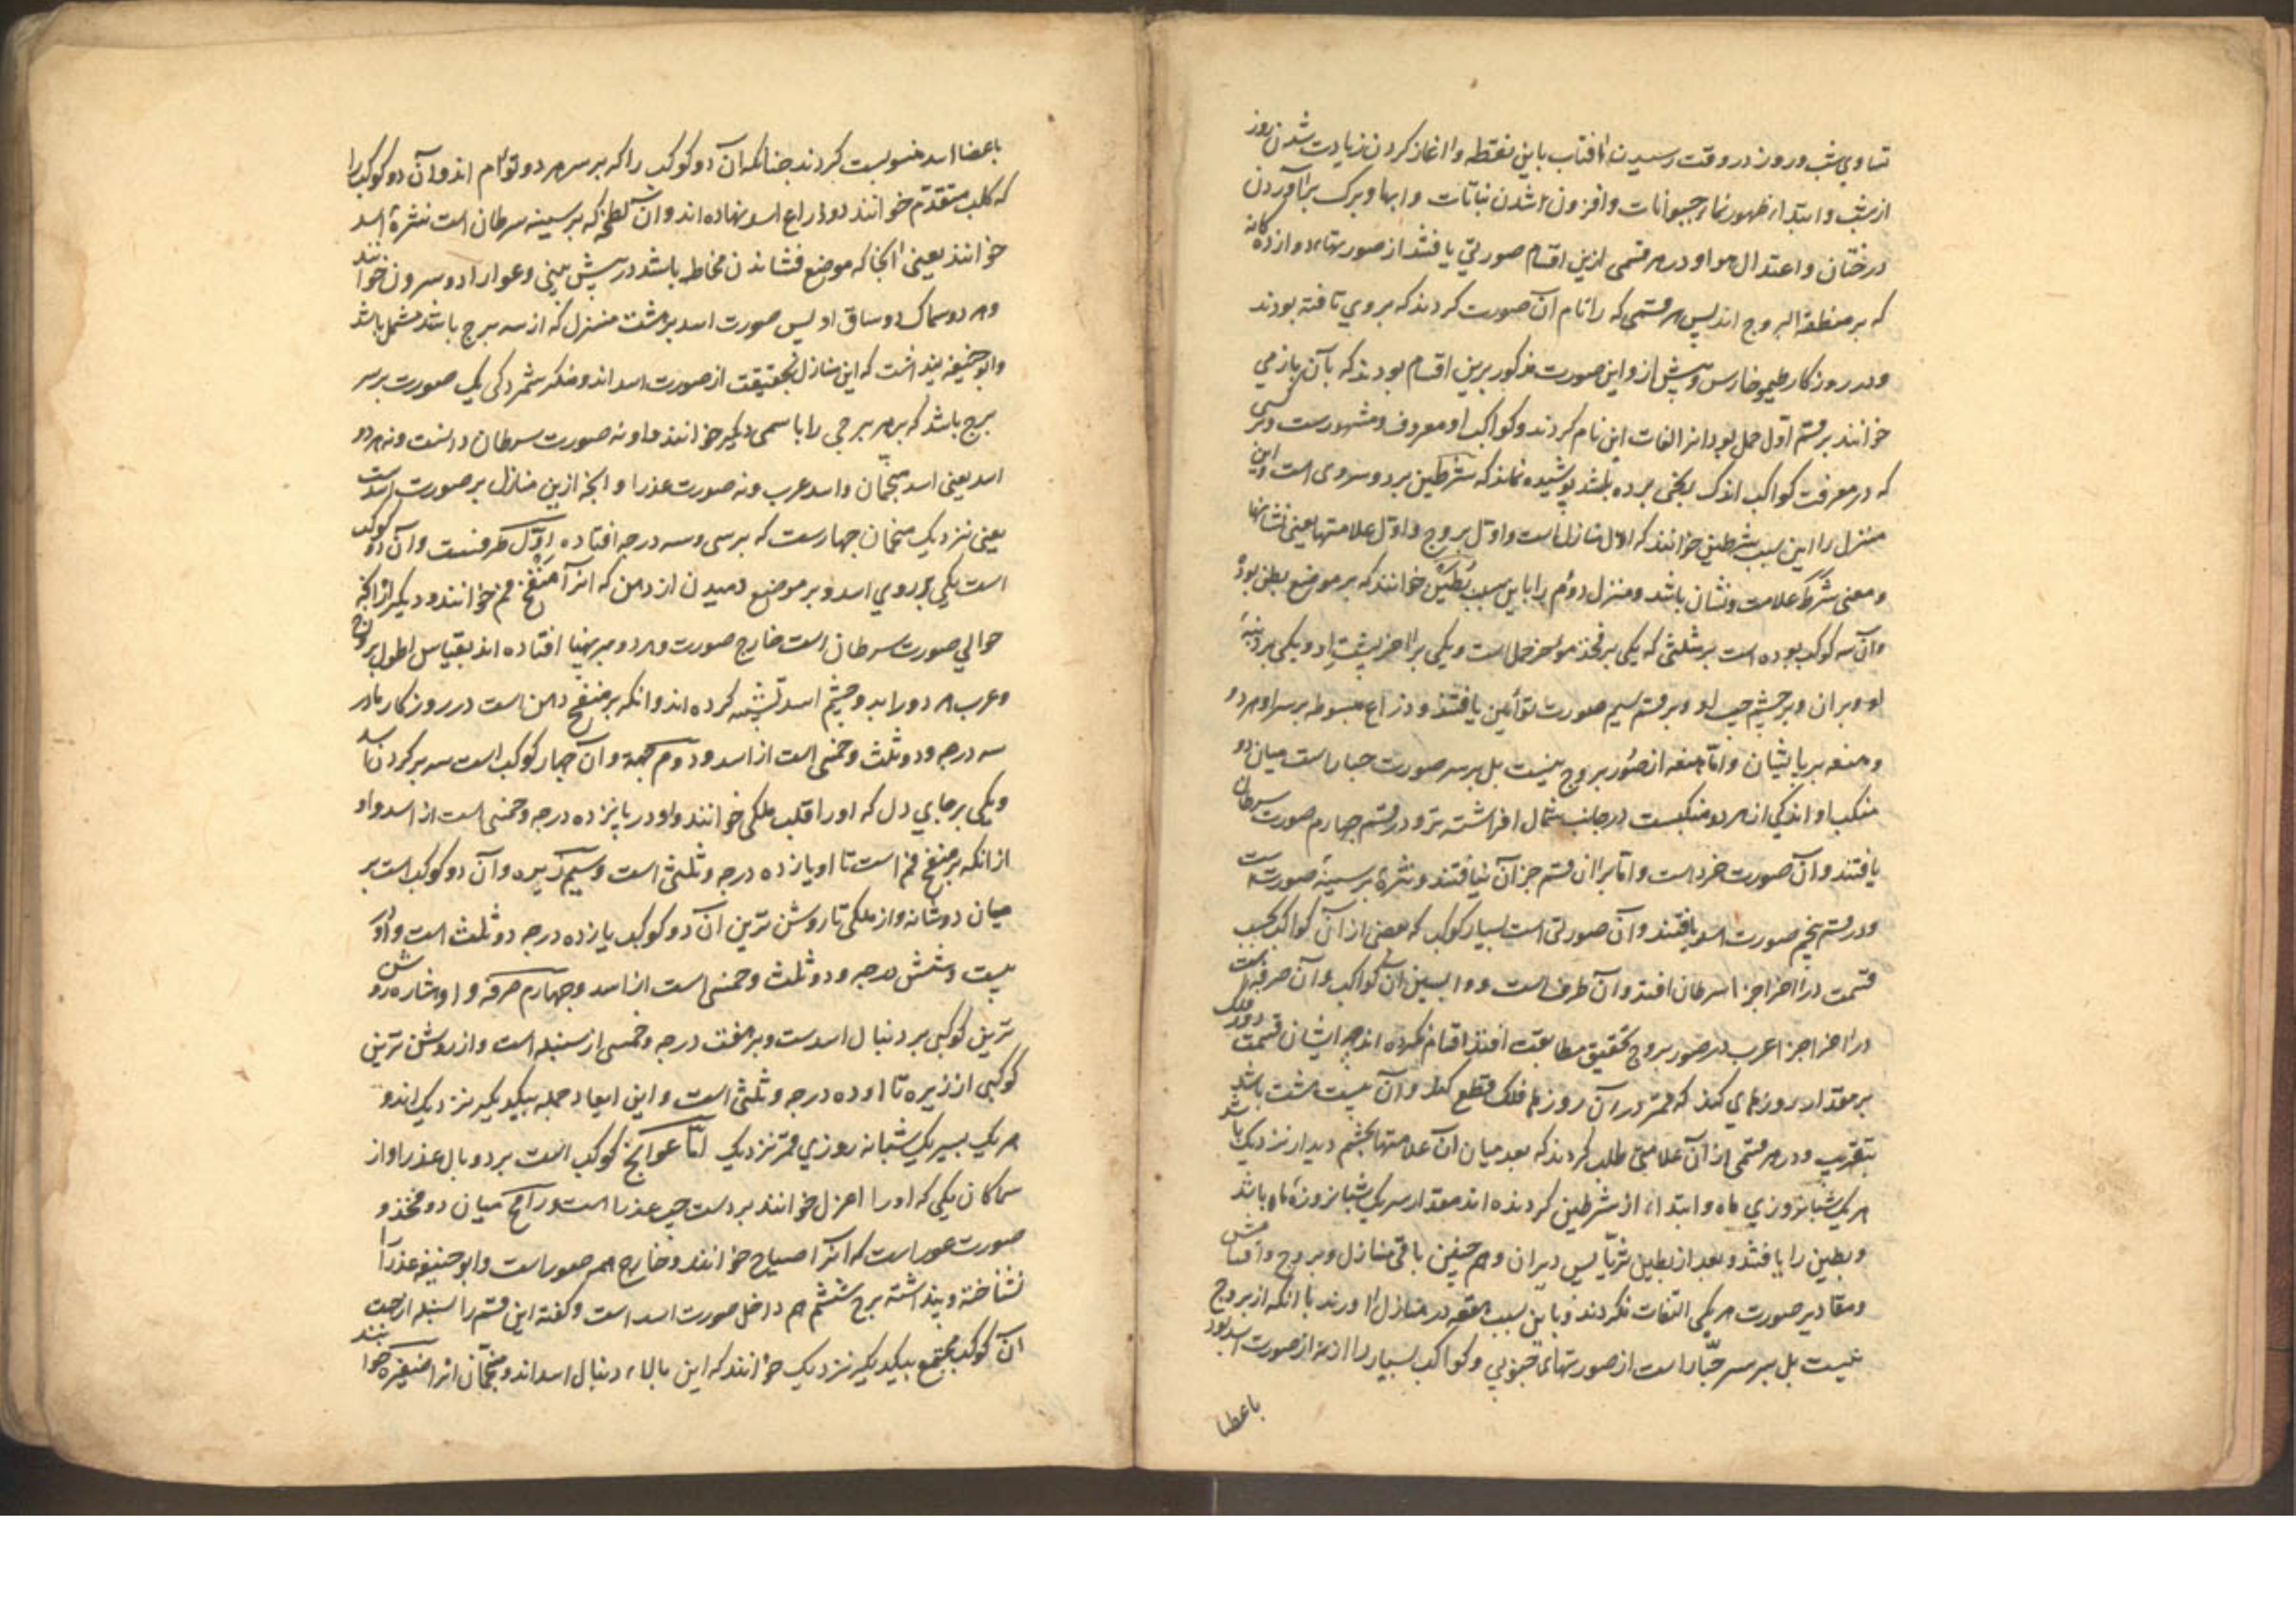 تساوی شب و روز در وقت رسیدن آفتاب باین نقطه و آغاز کردن زیادت شدن روز
از شب و ابتداء ظهور نماء حیوانات و افزون شدن نباتات و ابها و برک برآوردن
درختان و اعتدال هوا و در هر قسمی ازین اقسام صورتی یافتند از صورتهاء دوازده کانه
که بر منطقة البروج اند پس هر قسمی که را نام آن صورت کردند که بروی تافته بودند
و در روزکار طیموخارس و پیش ازو این صورت مذکور برین اقسام بودند که بآن باز می
خوانند بر قسم اول حمل بود ازالفات این نام کردند و کواکب او معروف و مشهورست و هر کسی
که در معرفت کواکب اندک رنجی برده باشد پوشیده نماند که شرطین بر دو سروی است و این
منزل را این سبب شرطین خوانند که اول منازل است و اول بروج و اول علامتها یعنی نشانها
و معنی شرط علامت و نشان باشد و منزل دوم را باین سبب بطین خوانند که بر موضع بطن بود
و آن سه کوکب بوده است بر مثلثی که یکی بر فخذ مؤخر حمل است و یکی بر آخر پشت او و یکی بر دنبهٔ
او و بران و بر چشم حب او و بر قسم سیم صورت توأمین یافتند و ذراع مبسوطه بر سر او هر دو
و هنعه بر پایشان و اما هقعه از صور بروج نیست بل بر سه صورت جبار است میان دو
منکب او اندکی از هر دو منکبست در جانب شمال افراشته تر و در قسم چهارم صورت سرطان
یافتند و آن صورت خرد است و اما برا ان قسم جز آن نیافتند و نثره بر سینهٔ صورتست
و در قسم پنجم صورت اسد یافتند و آن صورتی است بسیار کوکب که بعضی از آن کواکب بحسب
قسمت در آخر اجزا سرطان افتد و آن طرف است و وا پسین آن کواکب و آن صرفه است
در آخر اجزا عرب در صور بروج بتحقیق مطابقت اقتدا اقسام نکرده اند چه ایشان قسمت دور فلک
بر مقدار روزهای کنند که قمر در آن روزها فلک قطع کند و آن بیست هشت باشد
بتقریب و در هر قسمی از آن علامتی طلب کردند که بعد میان آن علامتها بچشم دیدار نزدیک باشد
هر یک شبانروزی ماه و ابتداء از شرطین کردنده اند مقدار سر یک شبانروزهٔ ماه باشد
و بطین را یافتند و بعد از بطین ثریا پس دبران و هم چنین باقی منازل و بروج و اقسامش
و مقادیر صورت هر یکی التفات نکردند و باین سبب هقعه در منازل آورند با آنکه از بروج
نیست بل بر سر جبار است از صورتهای جنوبی و کواکب بسیار را از صورت اسد بود
باعضا
باعضا اسد منسوبست کردند چنانکه آن دو کوکب را که بر سر هر دو توأم اند و آن دو کوکب را
که کلب متقدم خوانند دو ذراع اسد نهاده اند و آن لطخه که بر سینه سرطان است نثرهٔ اسد
خوانند یعنی آنجا که موضع فشاندن مخاط باشد در پیش بینی و عوا را دو سرون خوانند
و هر دو سماک دو ساق او پس صورت اسد بر هشت منزل که از سه برج باشد مشتمل باشد
و ابو حنیفه پنداشت که این منازل بحقیقت از صورت اسد اند و منکر شمردکی یک صورت بر سر
برج باشد که بر هر برجی را باسمی دیکر خوانند و او نه صورت سرطان دانست و نه هر دو
اسد یعنی اسد منجمان و اسد عرب و نه صورت عذرا و آنچه ازین منازل بر صورت اسد است
یعنی نزدیک منجمان چهارست که بر سی و سه درجه افتاده اول طرفست و آن دو کوکب
است یکی بر روی اسد و بر موضع دمیدن از دهن که آنرا منفخ فم خوانند و دیکر از آنچه
حوالی صورت سرطان است خارج صورت و هر دو بر پهنا افتاده اند بقیاس اطول بروج
و عرب هر دو را بدو چشم اسد تشبیه کرده اند و آنکه بر منفخ دهن است در روزکار ما در
سه درجه و دو ثلث و خمسی است از اسد و دوم جبهة و آن چهار کوکب است سه بر کردن اسد
و یکی بر جای دل که او را قلب ملکی خوانند و او در پانزده درجه و خمسی است از اسد و او
از آنکه بر منفخ فم است تا او یازده درجه و ثلثی است و سیم زبره و آن دو کوکب است بر
میان دو شانه و از ملکی تا روشن ترین آن دو کوکب یازده درجه دو ثلث است و او در
بیست و شش درجه و دو ثلث و خمسی است از اسد و چهارم صرفه و او ستاره روشن
ترین کوکبی بر دنبال اسدست و بر هفت درجه و خمسی از سنبله است و از روشن ترین
کوکبی از زبره تا او ده درجه و ثلثی است و این ابعاد جمله بیکدیکر نزدیک اند و
هر یک بسیر یک شبانه روزی قمر نزدیک اما عوا پنج کوکب است بر دو بال عذرا و از
سماکان یکی که او را اعزل خوانند بر دست چپ عذرا است و رامح میان دو فخذ و
صورت عوا است که آنرا صیاح خوانند و خارج هم صور است و ابو حنیفه عذرا را
نشناخته و پنداشته برج ششم هم داخل صورت اسد است و کفته این قسم را سنبله از جهت
آن کوکب مجتمع بیکدیکر نزدیک خوانند که این بالاء دنبال اسد اند و منجمان آنرا ضفیره خوانند